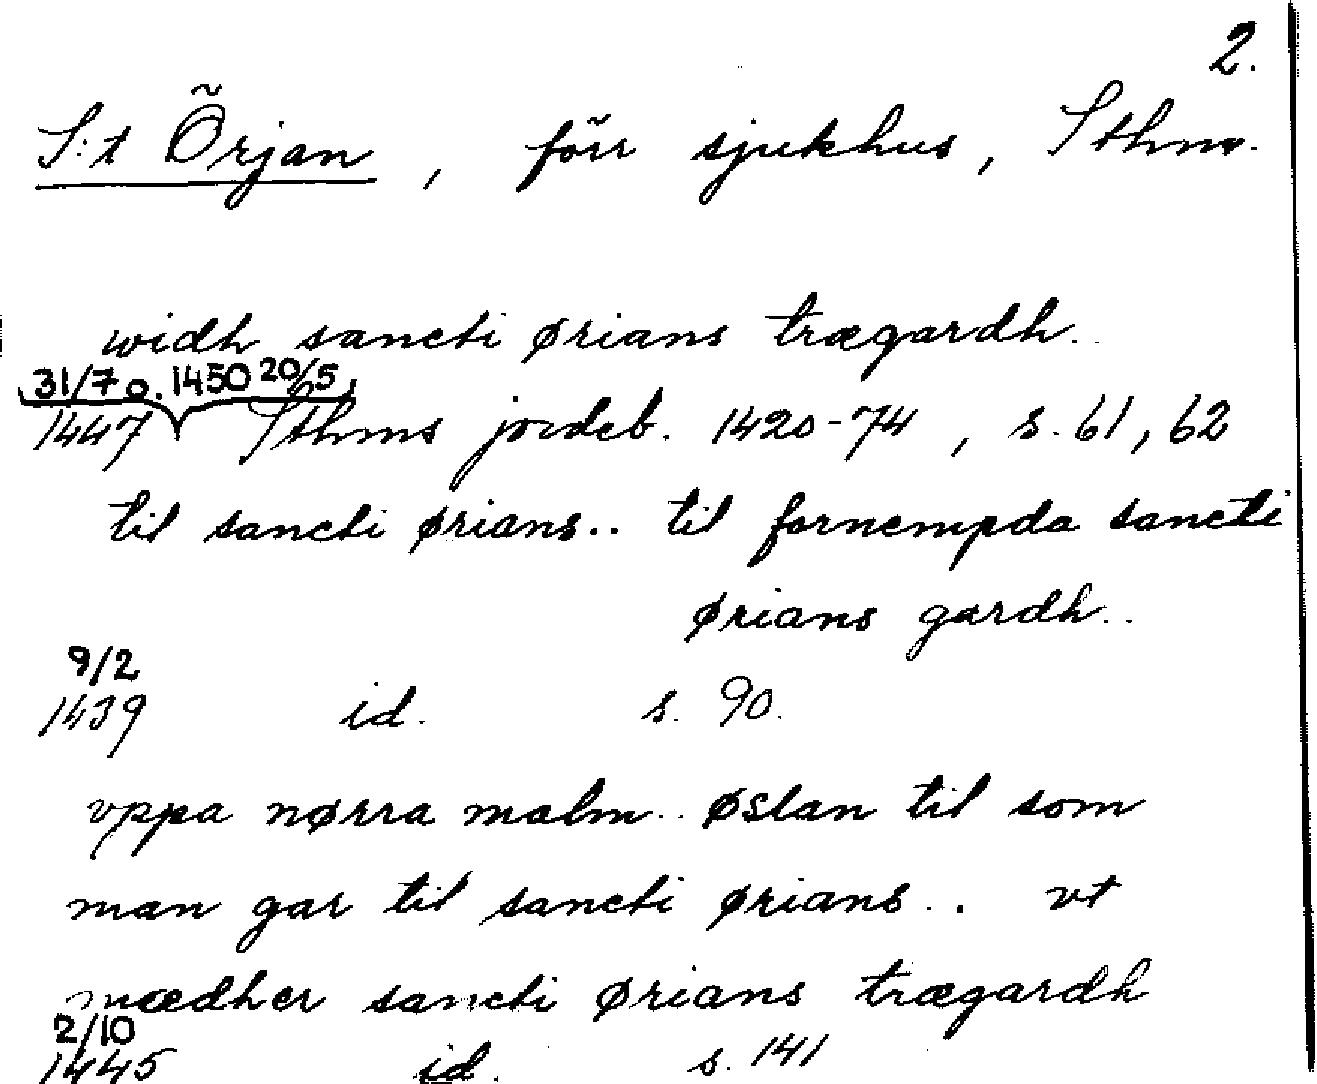 2.
S:t Örjan, förr sjukhus, Sthm.
widh sancti ørians trægardh..
31/7 o. 1450 20/5
1447 Sthms jordeb. 1420-74, s. 61, 62
til sancti ørians.. til fornempda sancti
ørians gardh..
9/2
1439 id. s. 90.
vppa nørra malm.. øslan til som
man gar til sancti ørians.. vt
mædher sancti ørians trægardh
2/10
1445 id. s. 141